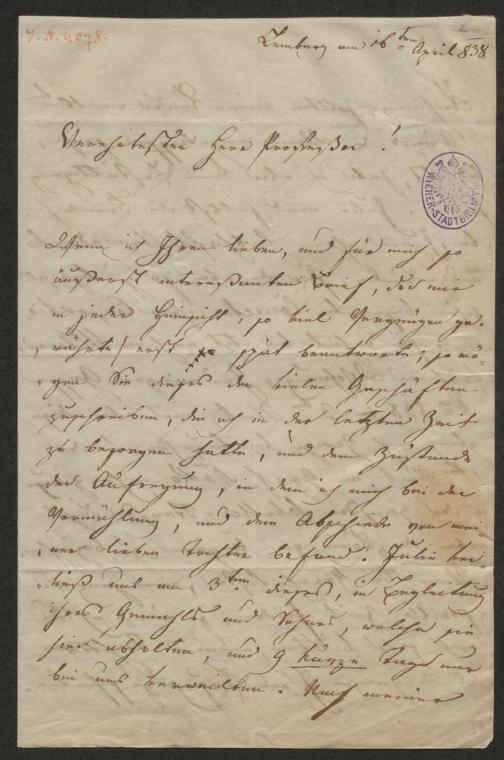 I. N. 4078.
2
Lemberg am 16ten April 838
Verehrtester Herr Professor!
WIENER-STADTBIBLIOTHEK
Wenn ich Ihren lieben, und für mich so
äußerst interessanten Brief, der mir
in jeder Hinsicht, so viel Vergnügen ge-
währte, erst spät beantworte; so mö-
gen Sie dieses den vielen Geschäften
zuschreiben, die ich in der letzten Zeit
zu besorgen hatte, und dem Zustande
der Aufregung, in dem ich mich bei der
Vermählung, und dem Abschiede von mei
ner lieben Tochter befand. Julie ver
ließ uns am 3ten dieses, in Begleitung
ihres Gemahls und Sohnes, welche sie
hier abholten, und 9 kurze Tage nur
bei uns verweilten. Nach meiner